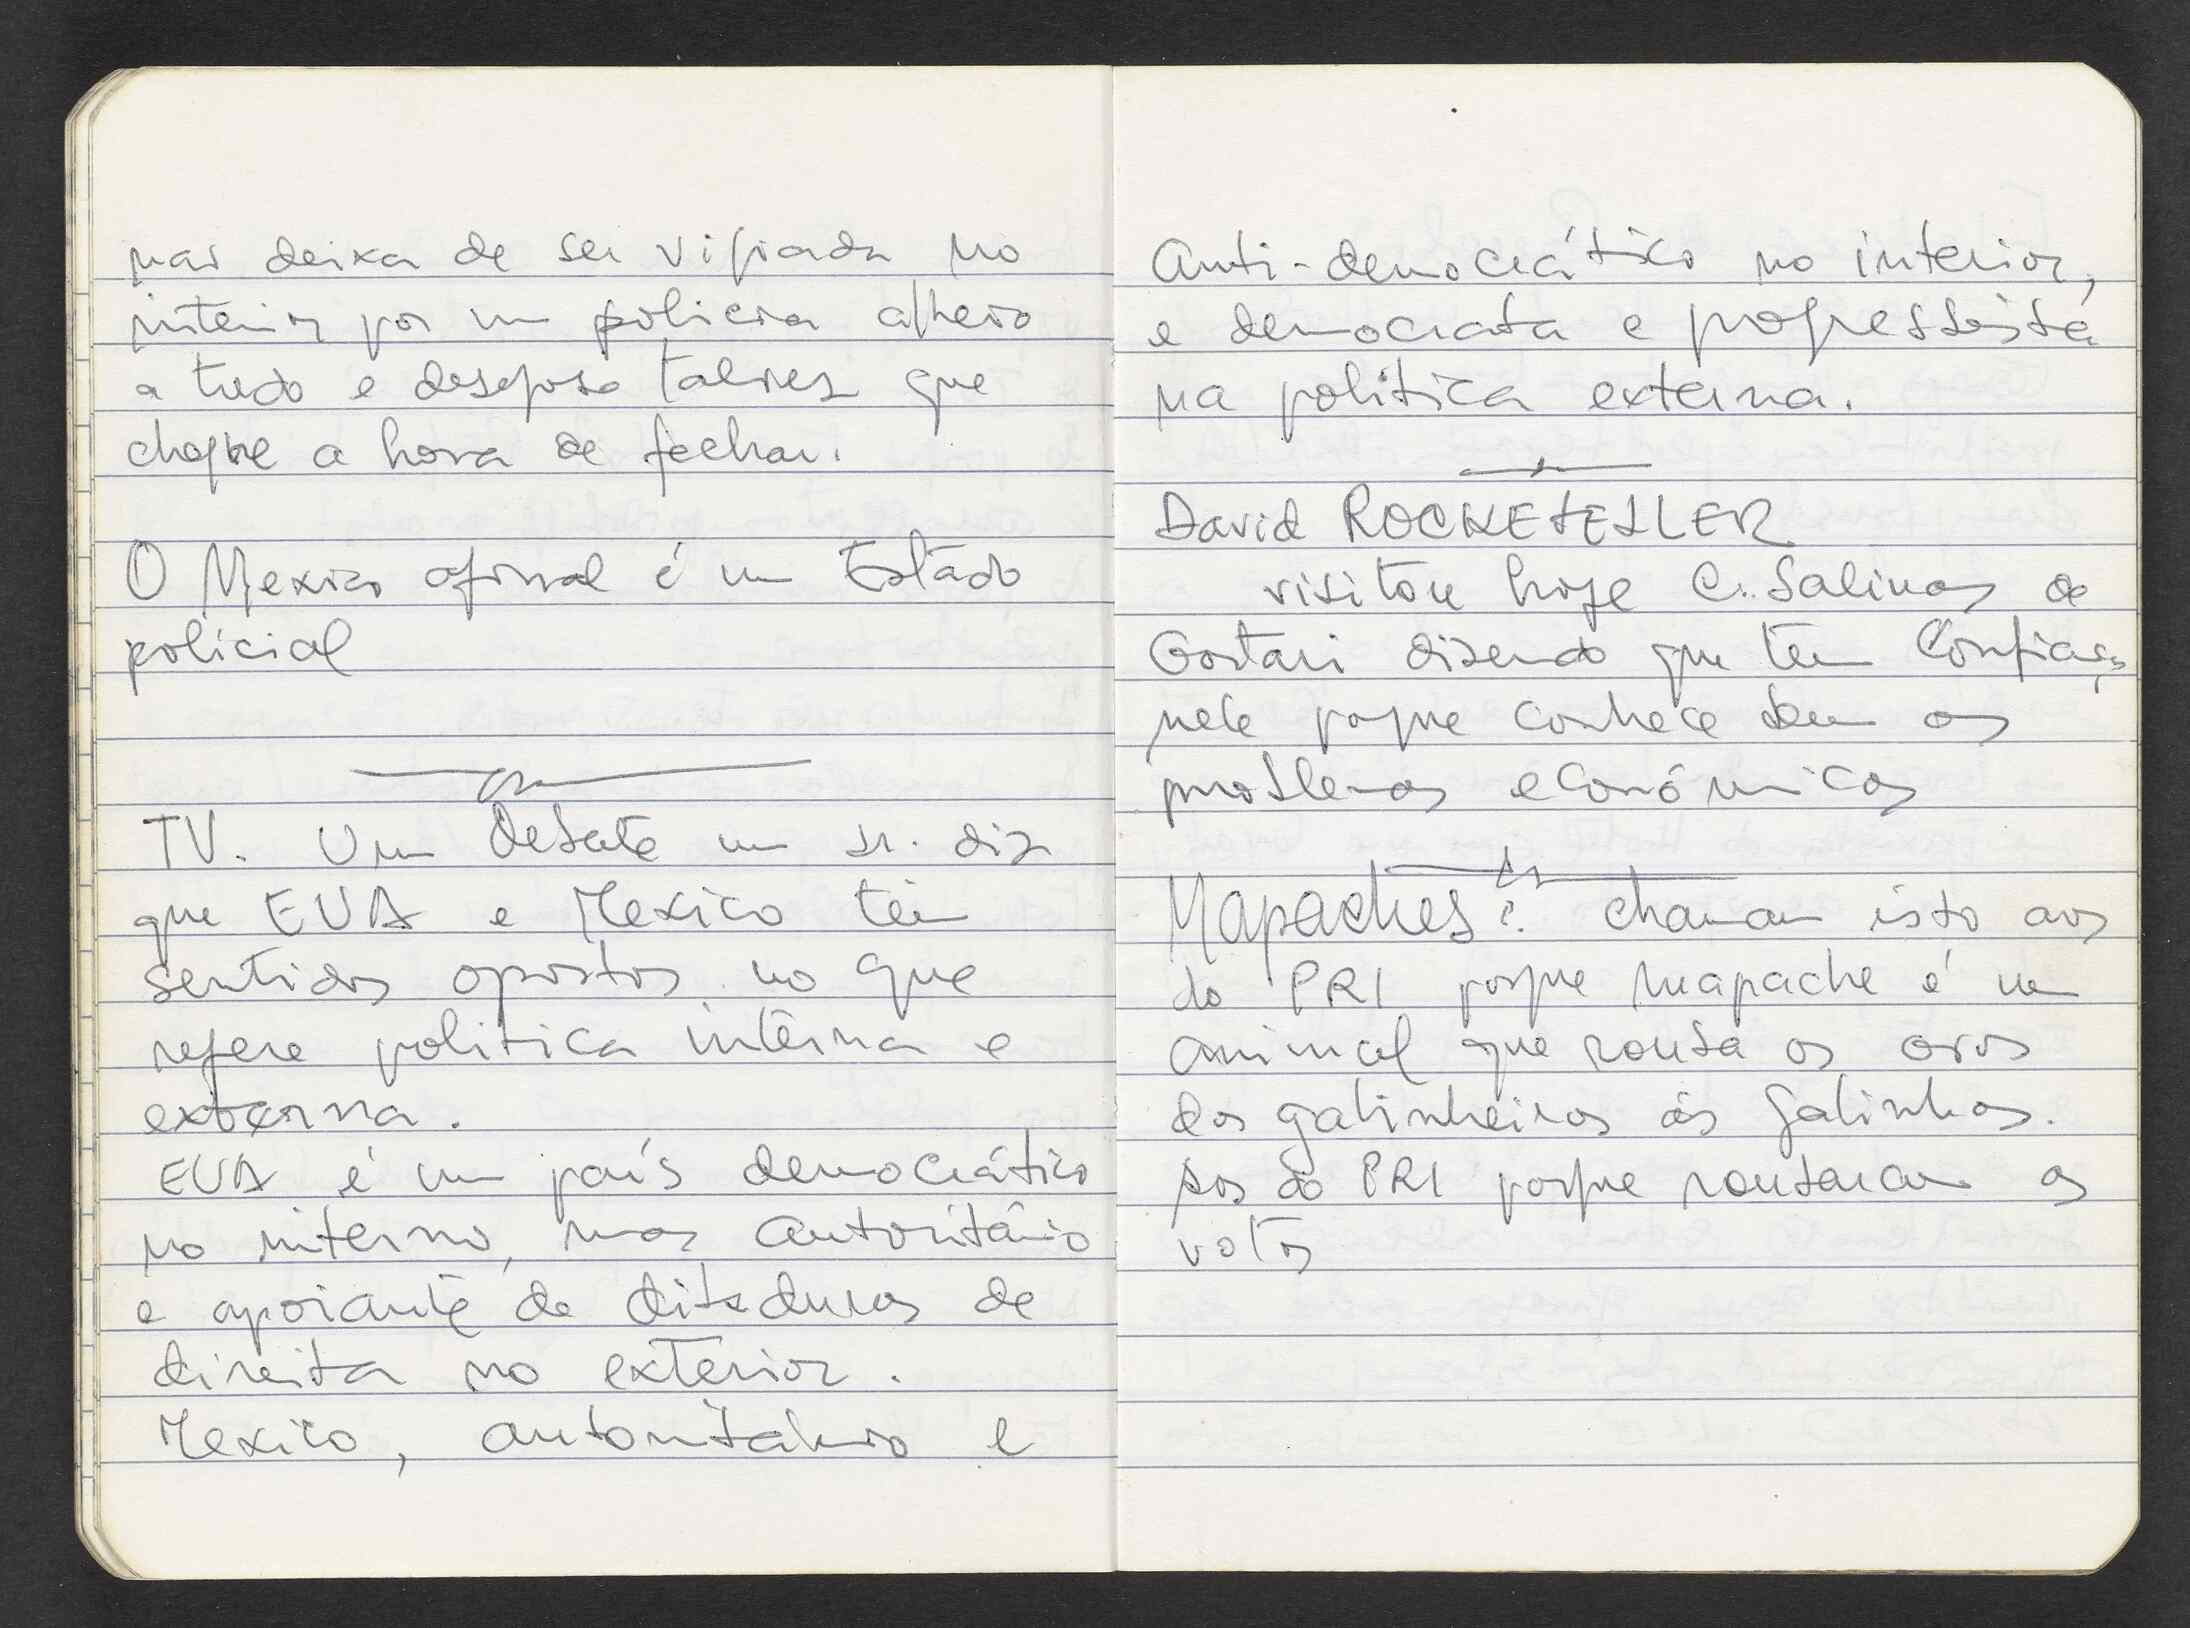 nas deixa de ser vigiada no
interior por um policia alheio
a tudo e desejoso talvez que
chegue a hora de fechar.
O Mexico afinal é um Estado
policial
TV. Um debate um sr. diz
que EUA e Mexico têm
sentidos opostos no que
refere politica interna e
externa.
EUA é um país democrático
no interno, mas autoritário
e apoiante de ditaduras de
direita no exterior.
Mexico, autoritário e
Anti-democrático no interior,
e democrata e progressista
na politica externa.
David ROCKEFELLER
visitou hoje C. Salinas de
Gortari dizendo que tem Confiança
nele porque conhece bem os
problemas económicos
Mapaches: chamam isto aos
do PRI porque mapache é um
animal que rouba os ovos
dos galinheiros às galinhas.
Aos do PRI porque roubaram os
votos